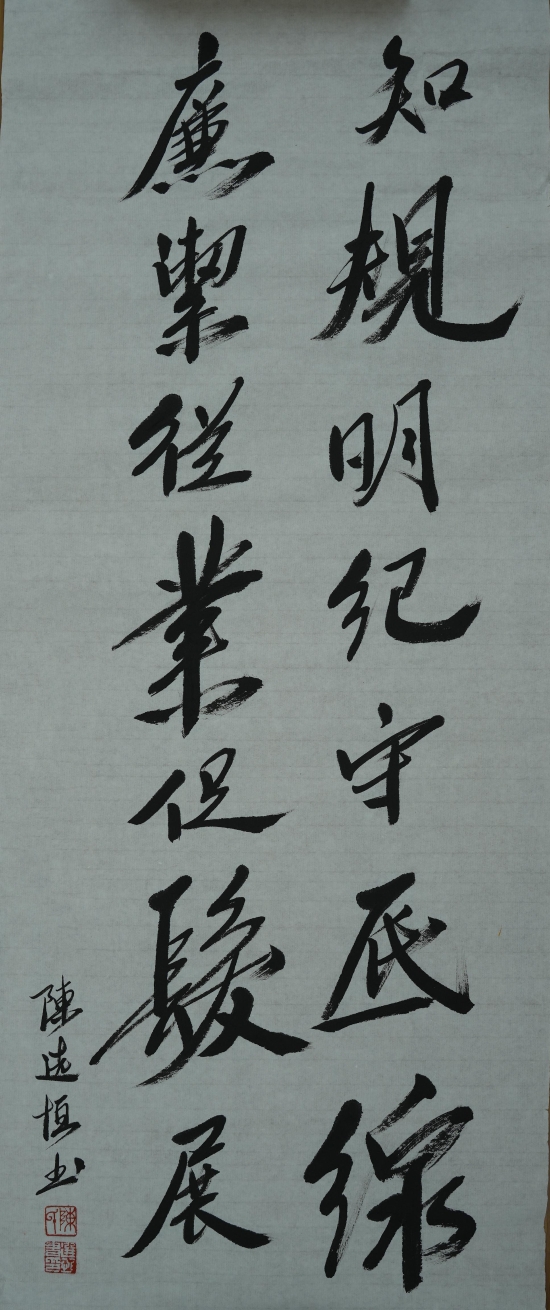 知規明紀守底線
廉潔從業促髮展
陳选恒书